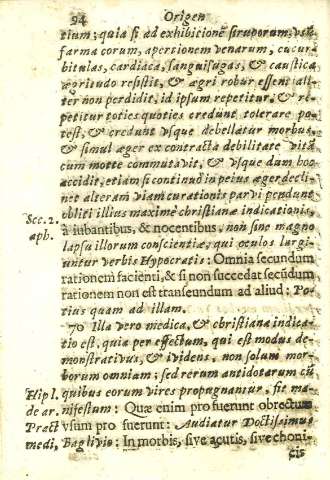 94 Origen
tium; quia si ad exhibicionẽ siruporum, vsu
farma corum, apertionem venarum, cucur
bituias, cardiaca, sanguisugas, & caustica
ægritudo resistit, & ægri robur essent ali
ter non perdidit, id ipsum repetitur, & re
petitur toties quoties credunt tolerare po
test, & credunt vsque debellatur morbus,
& simul æger ex contracta debilitate vitã
cum motte commutavit, & vsque dum hoc
accidit, etiam si continuò in peius æger decli-
net alteram viam curationis parvi pendunt
obliti illius maximè christianæ indicationis,
Sec. 2. à iubantibus, & nocentibus, non sine magno
aph. lapsu illorum conscientiæ, qui oculos largi
untur verbis Hypocratis: Omnia secundum
rationem facienti, & si non succedat secũdum
rationem non est transeundum ad aliud: Po-
tius quam ad illam.
70 Illa vero medica, & christiana indica-
tio est, quia per effectum, qui est modus de-
monstrativus, & ividens, non solum mor-
borum omniam; sed rerum antidotarum cũ
Hip l. quibus eorum vires propugnantur, fit ma-
de ar. nifestum: Quæ enim pro fuerunt obrectum
Pract vsum pro fuerunt: Audiatur Doctissimus
medi, Baglivio: In morbis, sive acutis, sive choni-
cis